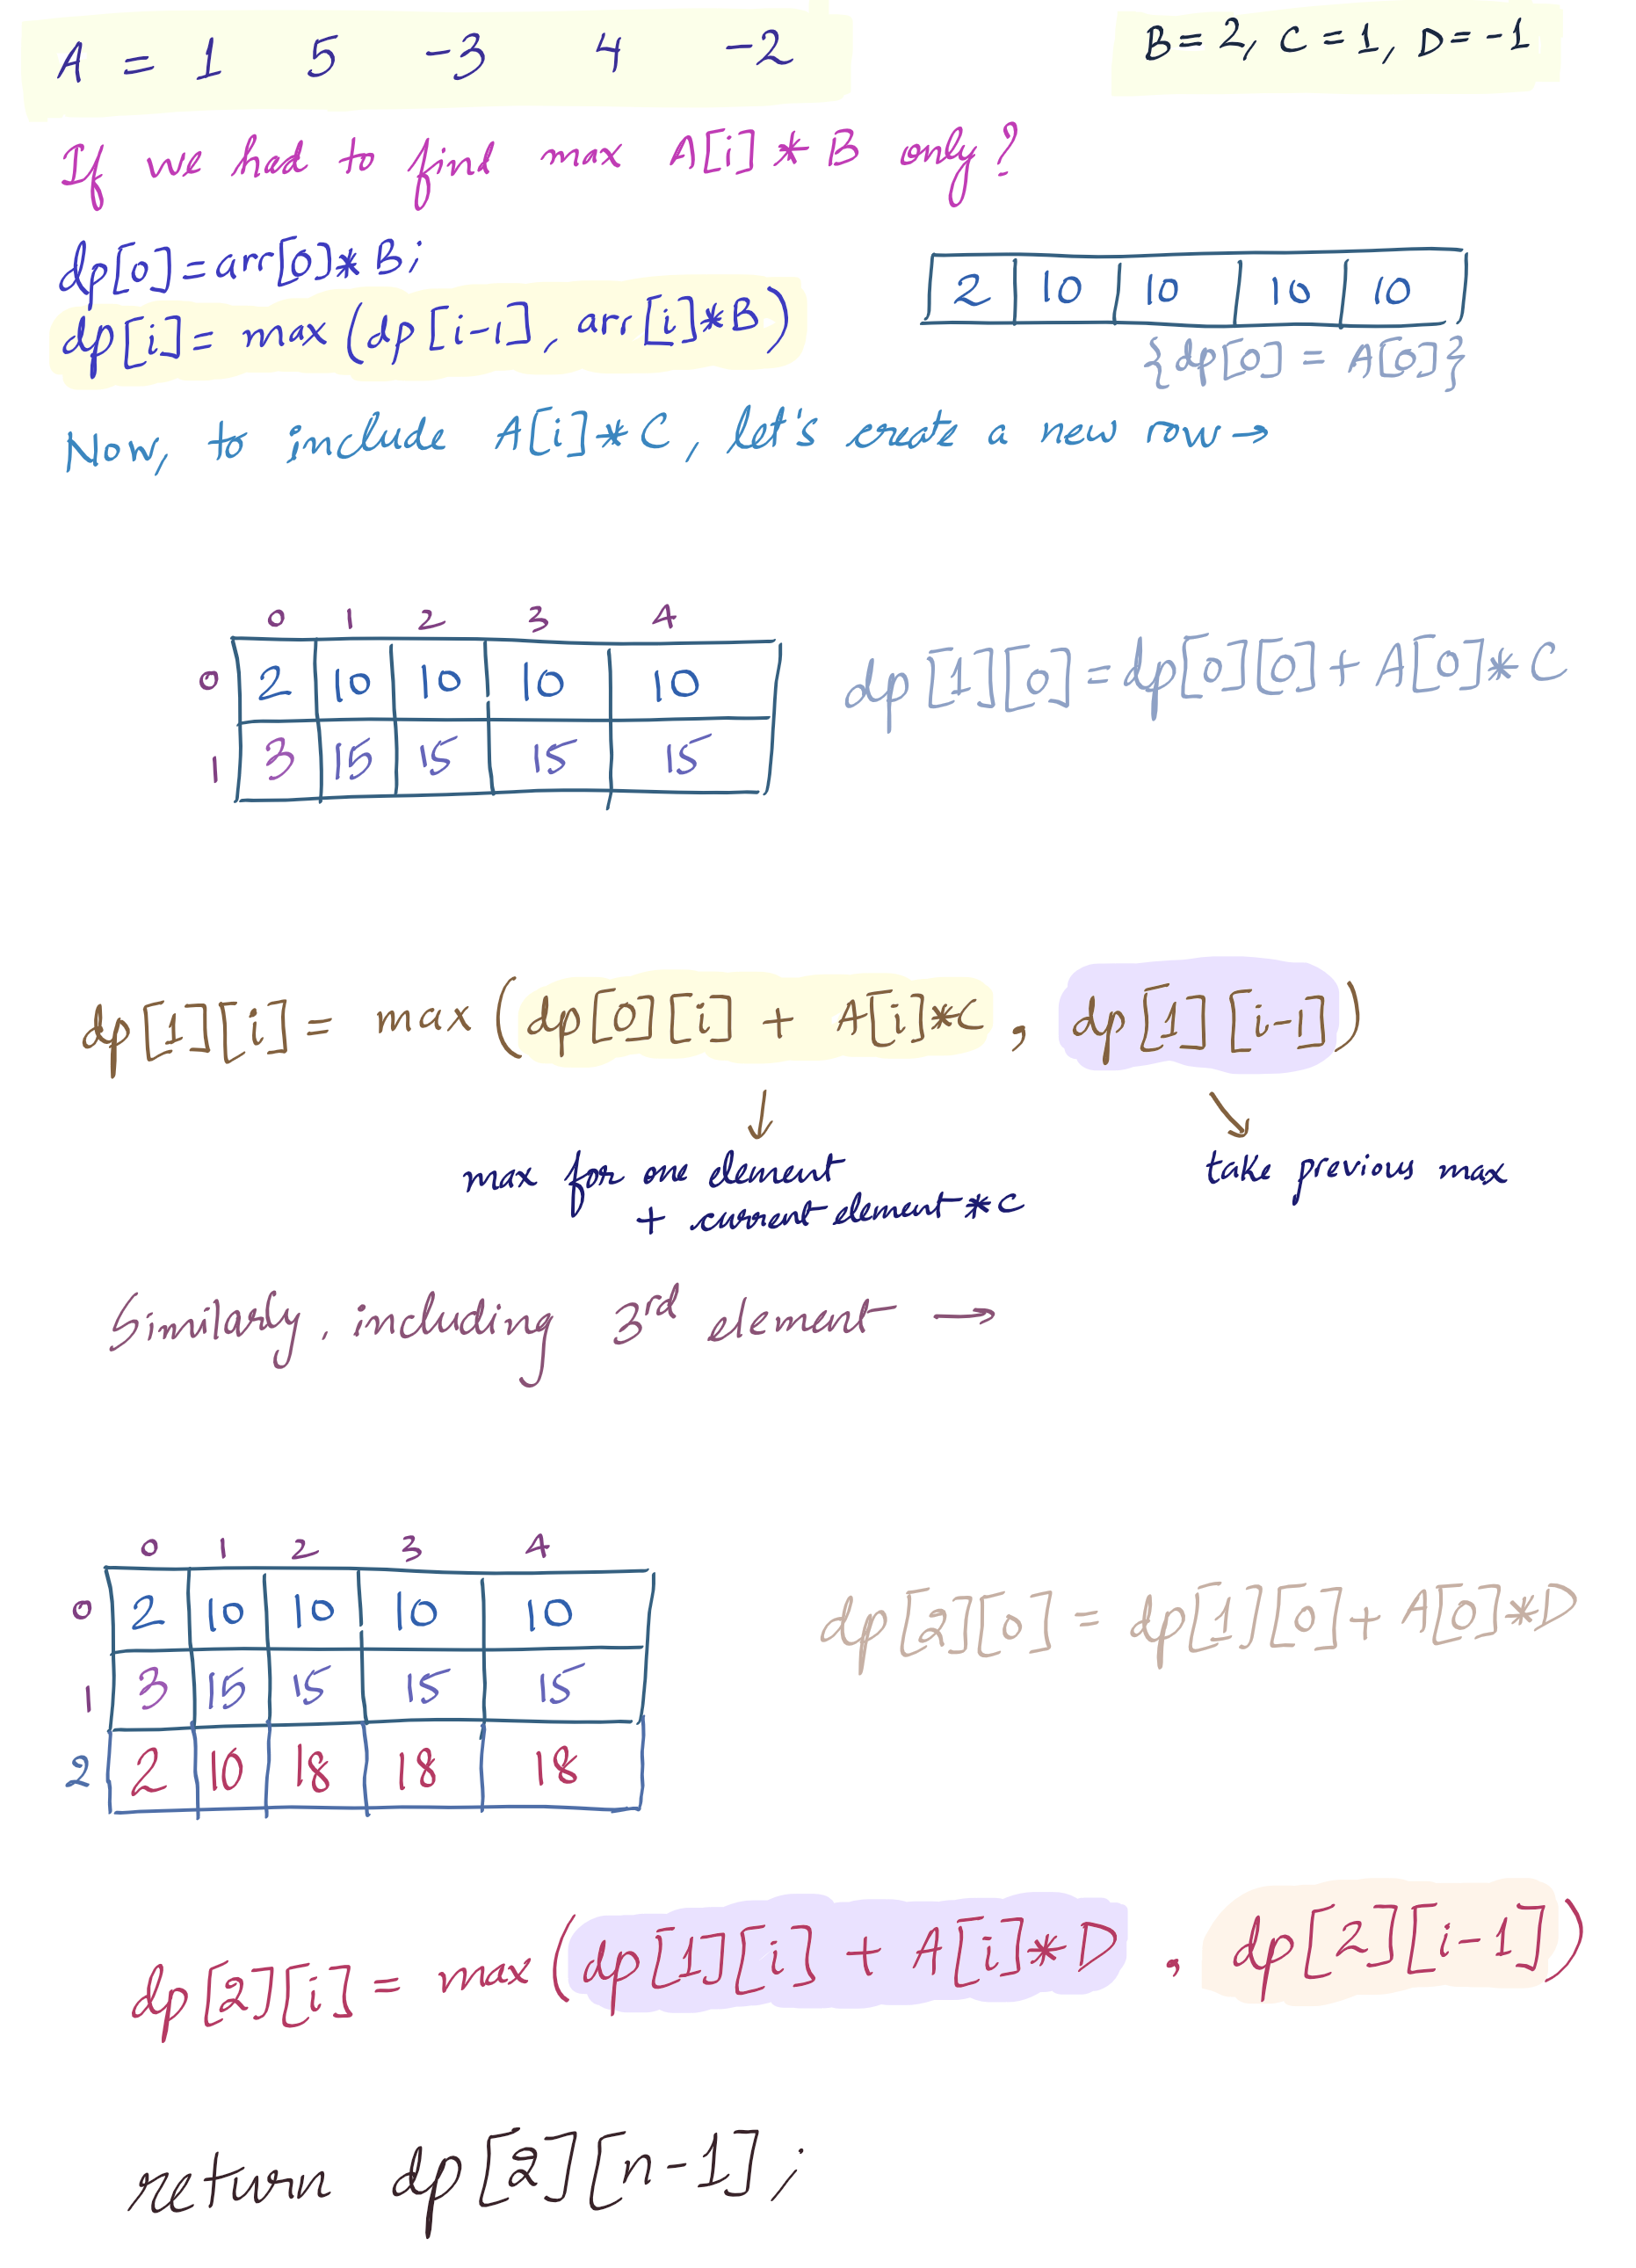 A = 1 5 -3 4 -2
B = 2, C = 1, D = -1
If we had to find max A[i] * B only?
dp[0] = arr[0] * B;
dp[i] = max (dp[i-1], arr[i]*B)
2 10 10 10 10
{dp[0] = A[0]}
Now, to include A[i]*C, let's create a new row →
0 1 2 3 4
0 2 10 10 10 10
1 3 15 15 15 15
dp[1][0] = dp[0][0] + A[0]*C
dp[1][i] = max (dp[0][i] + A[i]*C , dp[1][i-1])
↓ ↘
max for one element
+ current element * C
take previous max
Similarly, including 3rd element →
0 1 2 3 4
0 2 10 10 10 10
1 3 15 15 15 15
2 2 10 18 18 18
dp[2][0] = dp[1][0] + A[0]*D
dp[2][i] = max (dp[1][i] + A[i]*D , dp[2][i-1])
return dp[2][n-1];